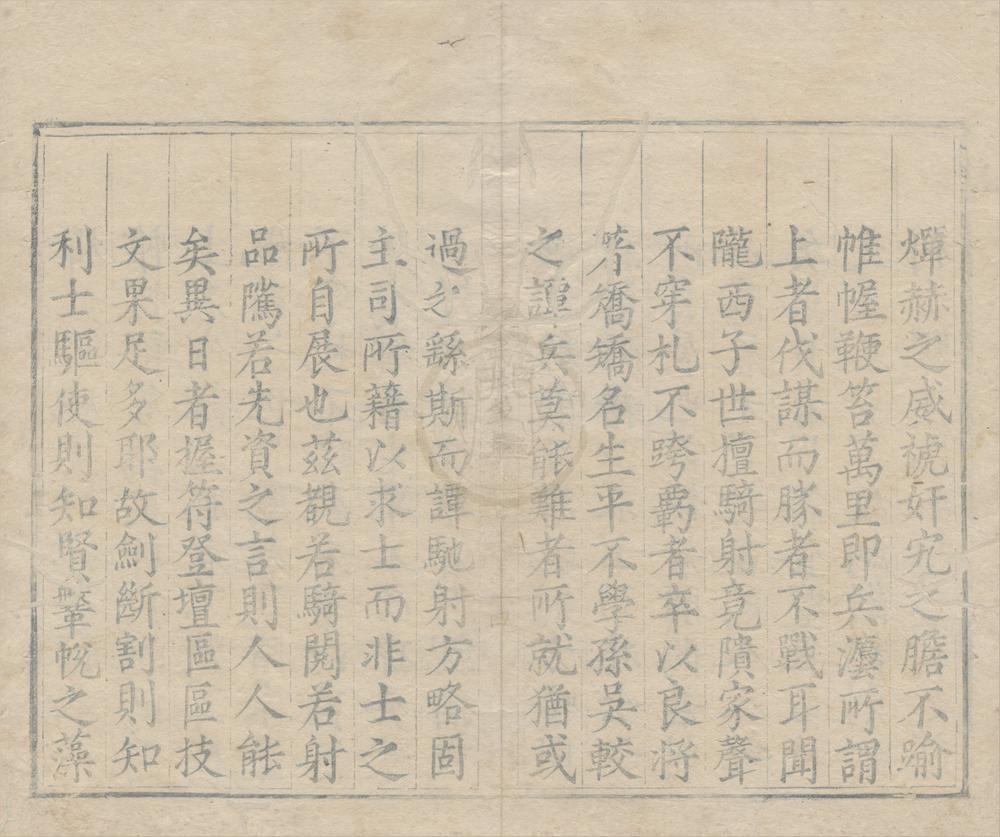 燀赫之威褫奸宄之膽不踰
帷幄鞭笞萬里即兵灋所謂
上者伐謀而勝者不戰耳聞
隴西子世擅騎射竟隤家聲
不穿札不跨覊者卒以良將
矯矯名生平不學孫吳較
之譚兵莫能難者所就猶或
過之繇斯而譚馳射方略固
主司所藉以求士而非士之
所自展也茲覩若騎閱若射
品隲若先資之言則人人能
矣異日者握符登壇區區技
文果足多耶故劍斷割則知
利士驅使則知賢鞶帨之藻